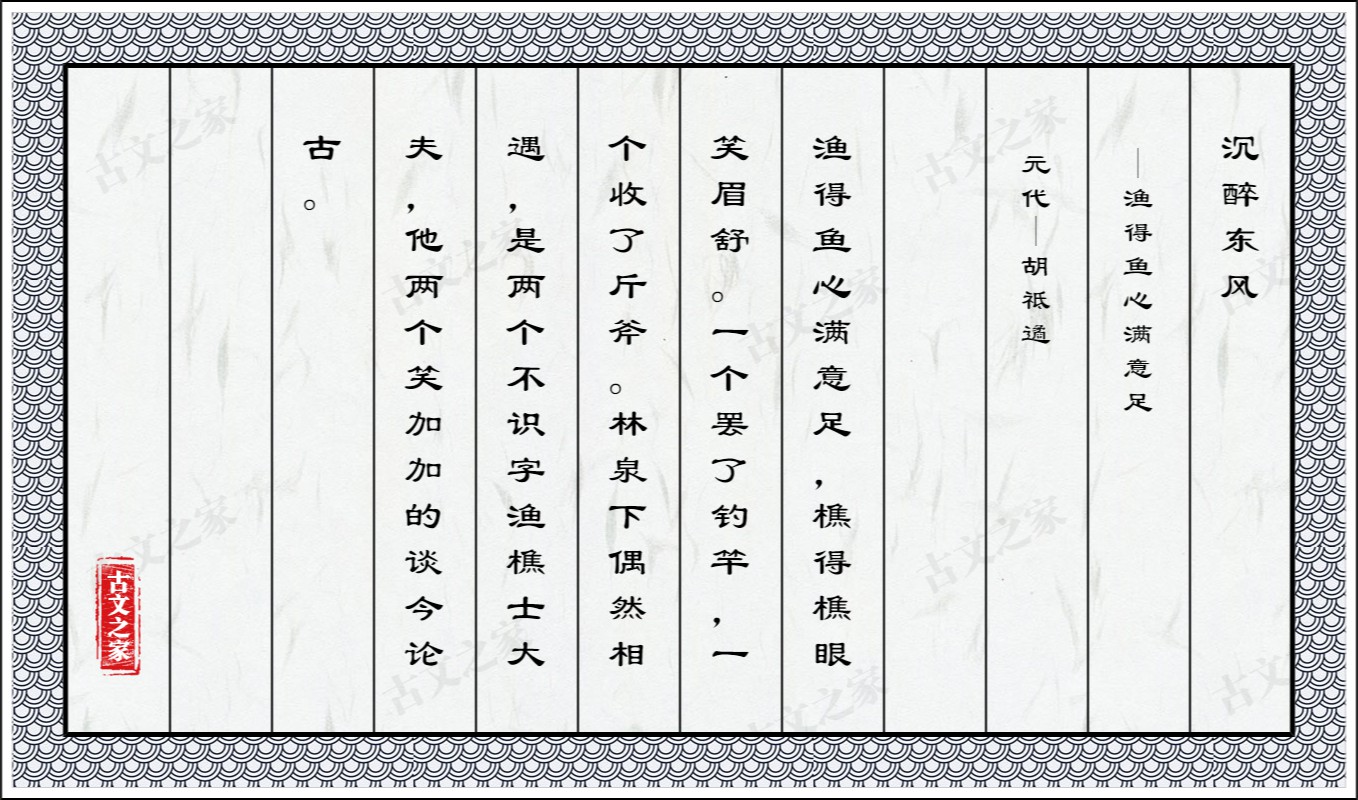 沉醉东风
—渔得鱼心满意足
元代—胡祗遹
渔得鱼心满意足,樵得樵眼
笑眉舒。一个罢了钓竿,一
个收了斤斧。林泉下偶然相
遇,是两个不识字渔樵士大
夫,他两个笑加加的谈今论
古。
古文之家